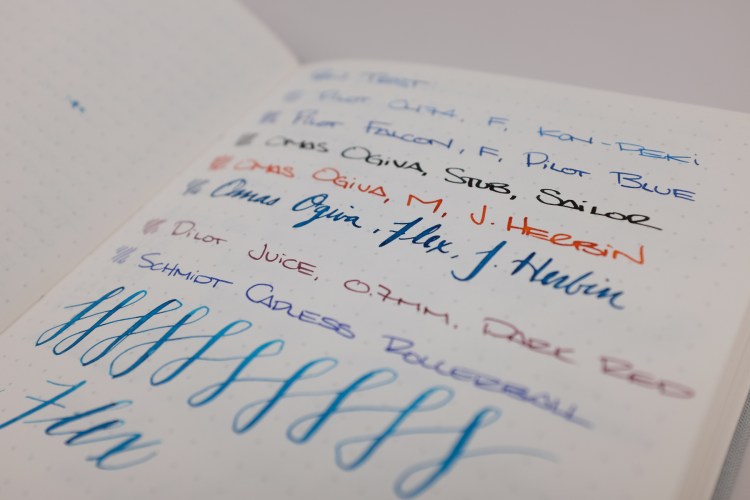 Pilot F, Kon-Peki
Pilot Falcon, F, Pilot Blue
Omas Ogiva, Stub, Sailor
Omas Ogiva, M, J. Herbin
Omas Ogiva, Flex, J. Herbin
Pilot Juice, 0.7mm, Dark Red
Schmidt Capless Rollerball
Flex